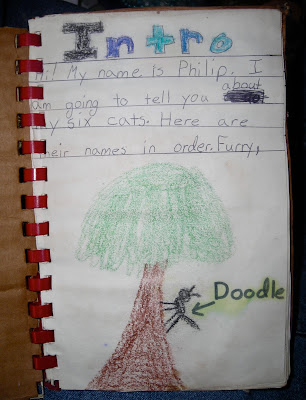 Intro
Hi! My name is Philip. I
am going to tell you about
my six cats. Here are
their names in order. Furry,
Doodle